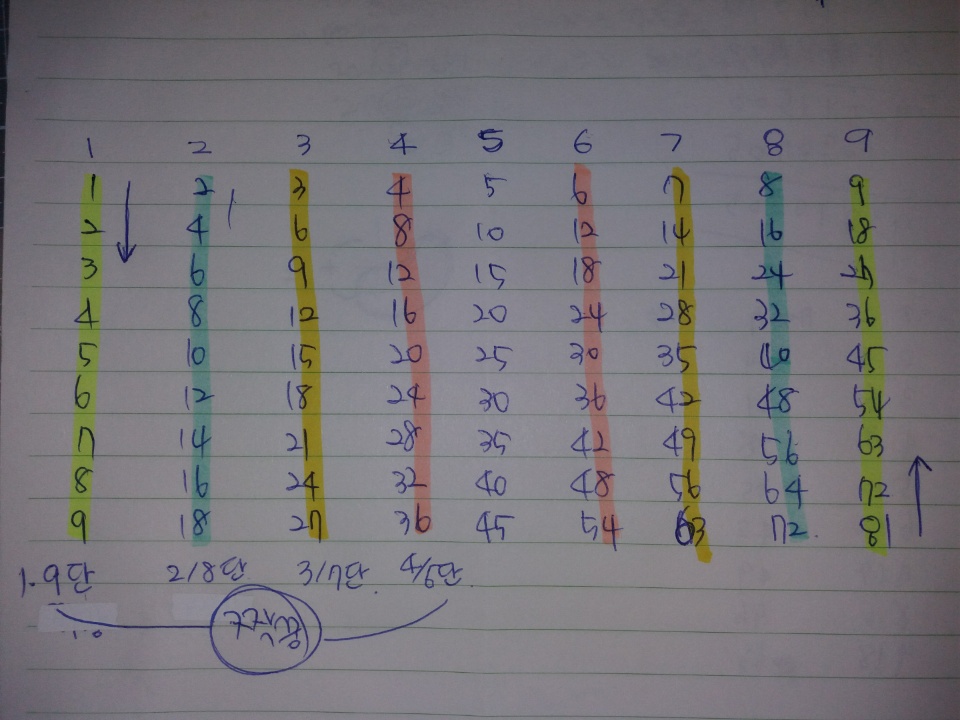 1 2 3 4 5 6 7 8 9
1 2 3 4 5 6 7 8 9
2 4 6 8 10 12 14 16 18
3 6 9 12 15 18 21 24 27
4 8 12 16 20 24 28 32 36
5 10 15 20 25 30 35 40 45
6 12 18 24 30 36 42 48 54
7 14 21 28 35 42 49 56 63
8 16 24 32 40 48 56 64 72
9 18 27 36 45 54 63 72 81
1·9단 2/8단 3/7단 4/6단